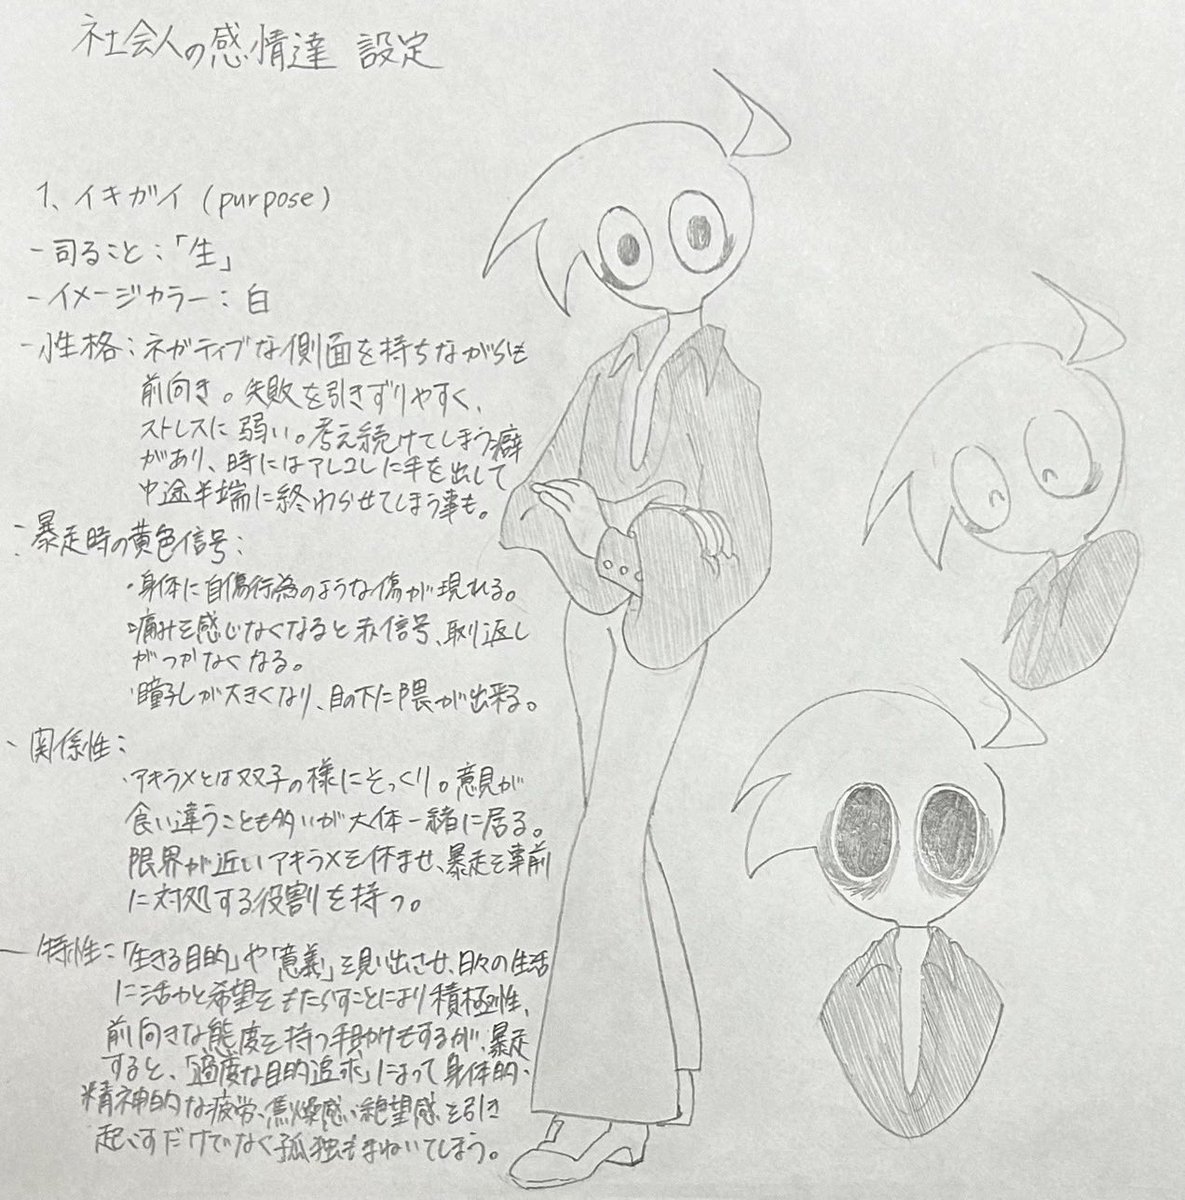 社会人の感情達 設定
1、イキガイ (purpose)
- 司ること:「生」
- イメージカラー: 白
- 性格: ネガティブな側面を持ちながらも
前向き。失敗を引きずりやすく、
ストレスに弱い。考え続けてしまう癖
があり、時にはアレコレに手を出して
中途半端に終わらせてしまう事も。
- 暴走時の黄色信号:
・身体に自傷行為のような傷が現れる。
・痛みを感じなくなると赤信号、取り返し
がつかなくなる。
・瞳孔が大きくなり、目の下に隈が出来る。
- 関係性:
・アキラメとは双子の様にそっくり。意見が
食い違うことも多いが大体一緒に居る。
限界が近いアキラメを休ませ、暴走を事前
に対処する役割を持つ。
- 特性:「生きる目的」や「意義」を見い出させ、日々の生活
に活力と希望をもたらすことにより積極性、
前向きな態度を持つ手助けもするが、暴走
すると、「過度な目的追求」によって身体的・
精神的な疲労、焦燥感、絶望感を引き
起こすだけでなく孤独もまねいてしまう。